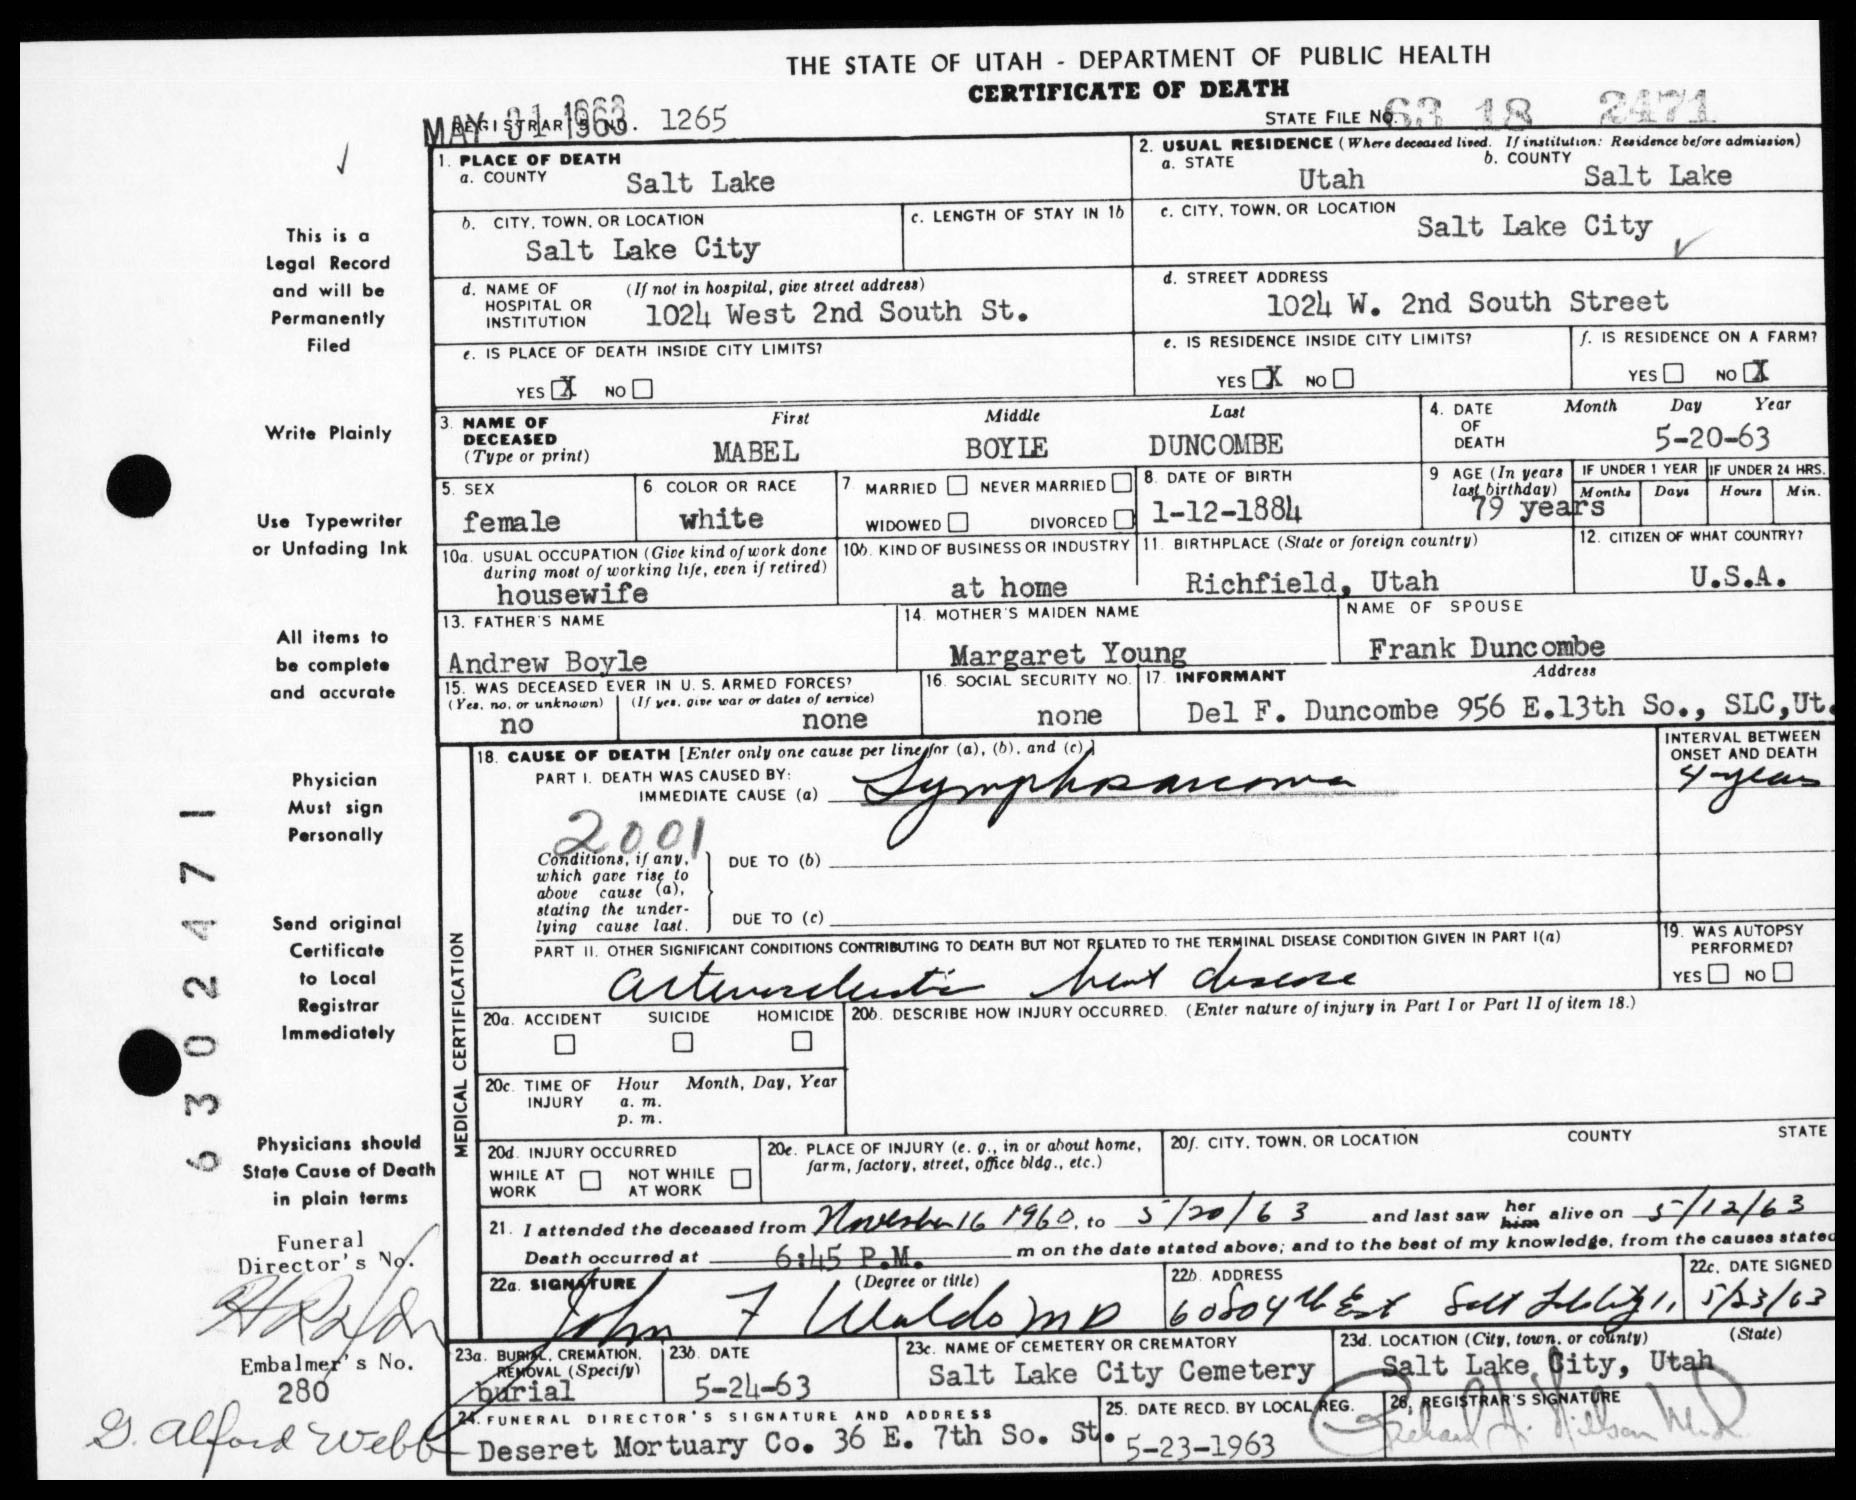 THE STATE OF UTAH - DEPARTMENT OF PUBLIC HEALTH
CERTIFICATE OF DEATH
MAY 31 1963 REGISTRAR'S NO. 1265
STATE FILE NO. 63 18 2471
This is a
Legal Record
and will be
Permanently
Filed
Write Plainly
Use Typewriter
or Unfading Ink
All items to
be complete
and accurate
Physician
Must sign
Personally
Send original
Certificate
to Local
Registrar
Immediately
Physicians should
State Cause of Death
in plain terms
Funeral
Director's No.
Embalmer's No.
280
G. Alford Webb
6302471
1. PLACE OF DEATH
a. COUNTY Salt Lake
2. USUAL RESIDENCE (Where deceased lived. If institution: Residence before admission)
a. STATE Utah b. COUNTY Salt Lake
b. CITY, TOWN, OR LOCATION Salt Lake City
c. LENGTH OF STAY IN 1b
c. CITY, TOWN, OR LOCATION Salt Lake City
d. NAME OF HOSPITAL OR INSTITUTION (If not in hospital, give street address)
1024 West 2nd South St.
d. STREET ADDRESS
1024 W. 2nd South Street
e. IS PLACE OF DEATH INSIDE CITY LIMITS?
YES X NO
e. IS RESIDENCE INSIDE CITY LIMITS?
YES X NO
f. IS RESIDENCE ON A FARM?
YES NO X
3. NAME OF DECEASED (Type or print)
First Middle Last
MABEL BOYLE DUNCOMBE
4. DATE OF DEATH Month Day Year
5-20-63
5. SEX
female
6 COLOR OR RACE
white
7 MARRIED NEVER MARRIED
WIDOWED DIVORCED
8. DATE OF BIRTH
1-12-1884
9 AGE (In years last birthday)
79 years
IF UNDER 1 YEAR IF UNDER 24 HRS.
Months Days Hours Min.
10a. USUAL OCCUPATION (Give kind of work done during most of working life, even if retired)
housewife
10b. KIND OF BUSINESS OR INDUSTRY
at home
11. BIRTHPLACE (State or foreign country)
Richfield, Utah
12. CITIZEN OF WHAT COUNTRY?
U.S.A.
13. FATHER'S NAME
Andrew Boyle
14. MOTHER'S MAIDEN NAME
Margaret Young
NAME OF SPOUSE
Frank Duncombe
15. WAS DECEASED EVER IN U. S. ARMED FORCES?
(Yes, no, or unknown) (If yes, give war or dates of service)
no none
16. SOCIAL SECURITY NO.
none
17. INFORMANT Address
Del F. Duncombe 956 E.13th So., SLC,Ut.
MEDICAL CERTIFICATION
18. CAUSE OF DEATH [Enter only one cause per line for (a), (b), and (c)]
PART I. DEATH WAS CAUSED BY:
IMMEDIATE CAUSE (a) Lymphosarcoma
INTERVAL BETWEEN ONSET AND DEATH
4 years
2001
Conditions, if any, which gave rise to above cause (a), stating the underlying cause last.
DUE TO (b)
DUE TO (c)
PART II. OTHER SIGNIFICANT CONDITIONS CONTRIBUTING TO DEATH BUT NOT RELATED TO THE TERMINAL DISEASE CONDITION GIVEN IN PART I(a)
arteriosclerotic heart disease
19. WAS AUTOPSY PERFORMED?
YES NO
20a. ACCIDENT SUICIDE HOMICIDE
20b. DESCRIBE HOW INJURY OCCURRED. (Enter nature of injury in Part I or Part II of item 18.)
20c. TIME OF INJURY Hour Month, Day, Year
a. m.
p. m.
20d. INJURY OCCURRED
WHILE AT WORK NOT WHILE AT WORK
20e. PLACE OF INJURY (e. g., in or about home, farm, factory, street, office bldg., etc.)
20f. CITY, TOWN, OR LOCATION COUNTY STATE
21. I attended the deceased from November 16 1960, to 5/20/63 and last saw her him alive on 5/12/63
Death occurred at 6:45 P.M. m on the date stated above; and to the best of my knowledge, from the causes stated
22a. SIGNATURE (Degree or title)
John F Waldo MD
22b. ADDRESS
508 04th East Salt Lake City 11,
22c. DATE SIGNED
5/23/63
23a. BURIAL, CREMATION, REMOVAL (Specify)
burial
23b. DATE
5-24-63
23c. NAME OF CEMETERY OR CREMATORY
Salt Lake City Cemetery
23d. LOCATION (City, town, or county) (State)
Salt Lake City, Utah
24. FUNERAL DIRECTOR'S SIGNATURE AND ADDRESS
Deseret Mortuary Co. 36 E. 7th So. St.
25. DATE RECD. BY LOCAL REG.
5-23-1963
26. REGISTRAR'S SIGNATURE